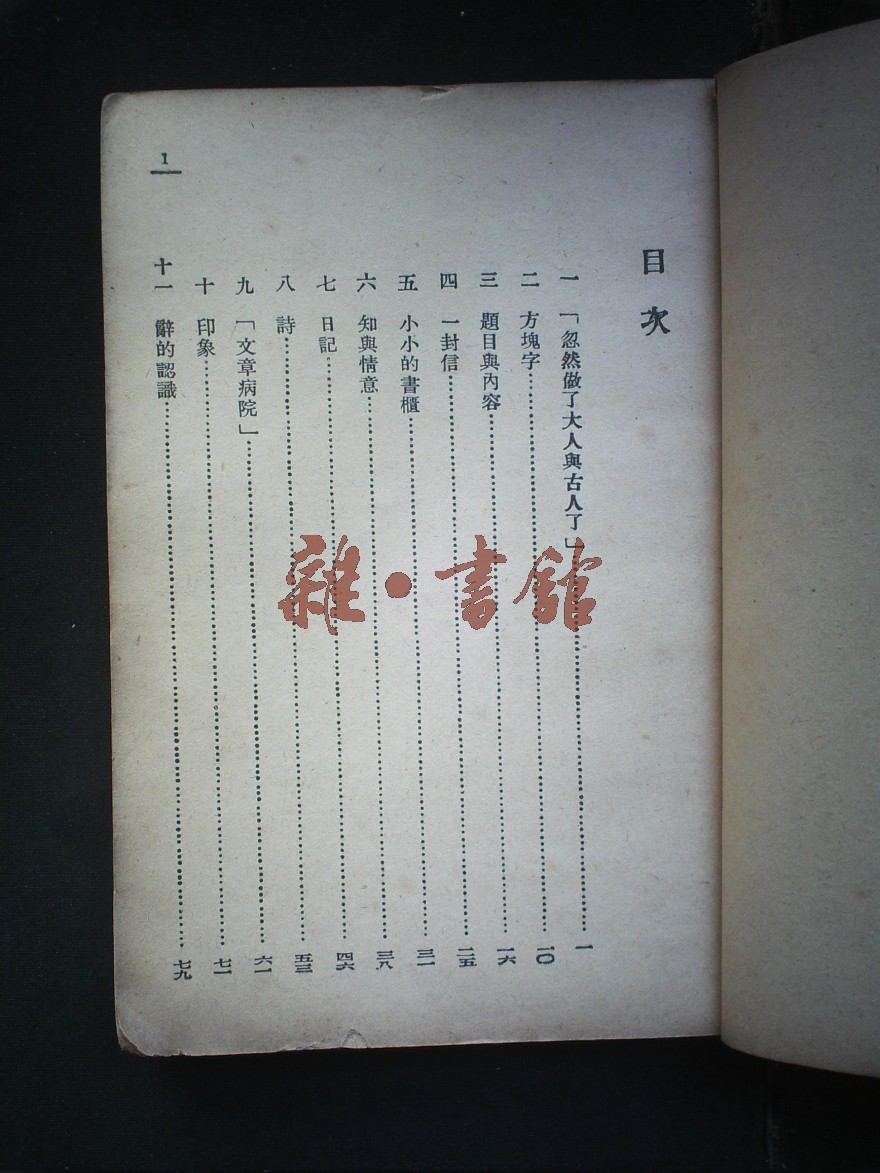 1
目次
一 「忽然做了大人與古人了」……一
二 方塊字……一〇
三 題目與內容……一六
四 一封信……二五
五 小小的書櫃……三一
六 知與情意……三八
七 日記……四六
八 詩……五三
九 「文章病院」……六一
十 印象……七一
十一 辭的認識……七九
雜·書館